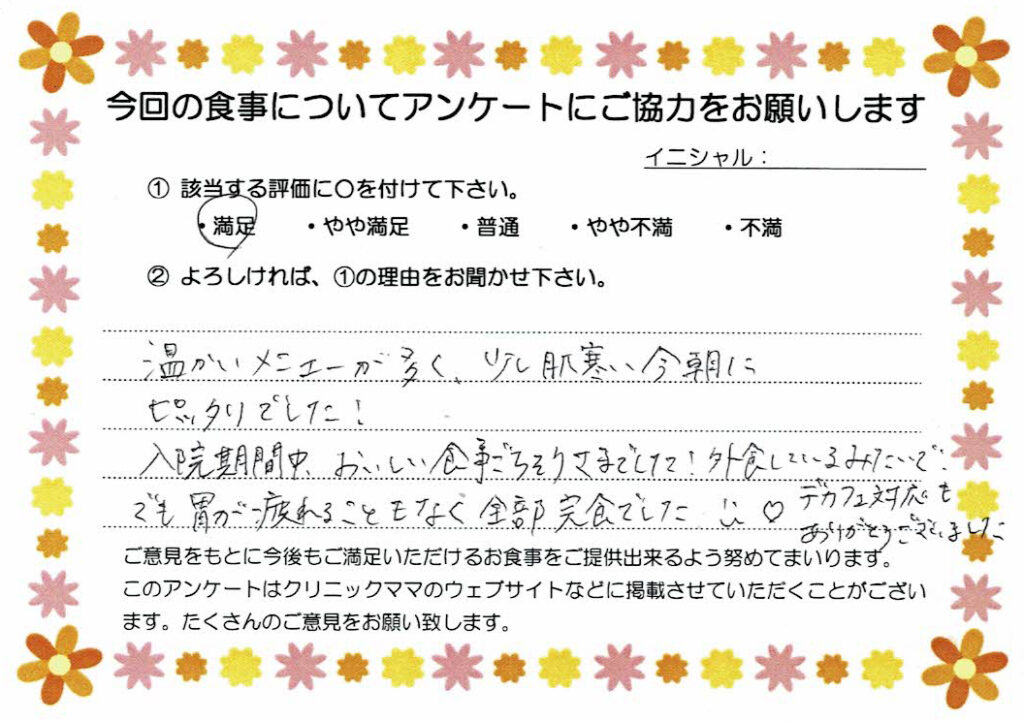 今回の食事についてアンケートにご協力をお願いします
イニシャル：
① 該当する評価に〇を付けて下さい。
・満足 ・やや満足 ・普通 ・やや不満 ・不満
② よろしければ、①の理由をお聞かせ下さい。
温かいメニューが多く、少し肌寒い今朝に
ピッタリでした！
入院期間中、おいしい食事ごちそうさまでした！外食しているみたいで、
でも胃が疲れることもなく全部完食でした ♡
デカフェ対応も
ありがとうございました
ご意見をもとに今後もご満足いただけるお食事をご提供出来るよう努めてまいります。
このアンケートはクリニックママのウェブサイトなどに掲載させていただくことがござい
ます。たくさんのご意見をお願い致します。